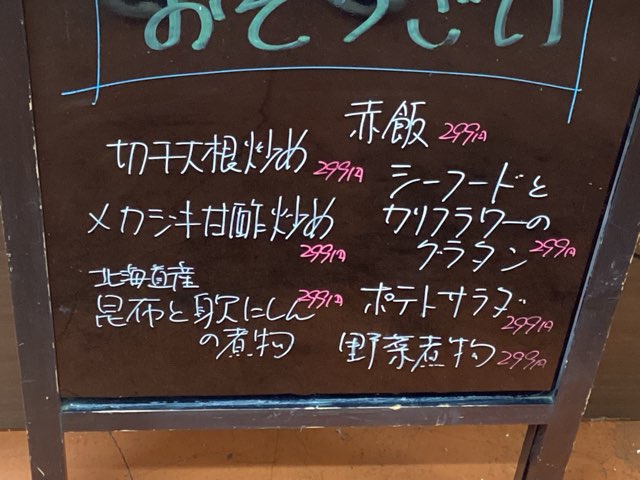 おそうざい
赤飯 299円
切干大根炒め 299円
シーフードと
カリフラワーの
グラタン 299円
メカジキ甘酢炒め
299円
北海道産
昆布と軟にしん 299円
の煮物
ポテトサラダ
299円
野菜煮物 299円